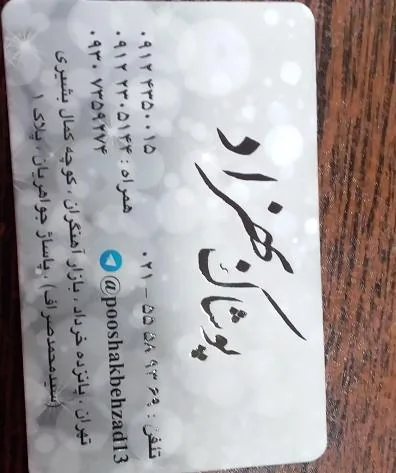 پوشاک بهزاد
تلفن : ۵۵۵۸۹۳۶۹ - ۰۲۱
۰۹۱۲ ۴۳۵۰۰۱۵
همراه : ۰۹۱۲ ۲۳۰۵۱۴۴
۰۹۳۰ ۷۳۵۹۲۷۴
@pooshakbehzad13
تهران ، پانزده خرداد ، بازار آهنگران ، کوچه کمال بشیری
(سیدمحمد صراف) ، پاساژ جواهریان ، پلاک ۱